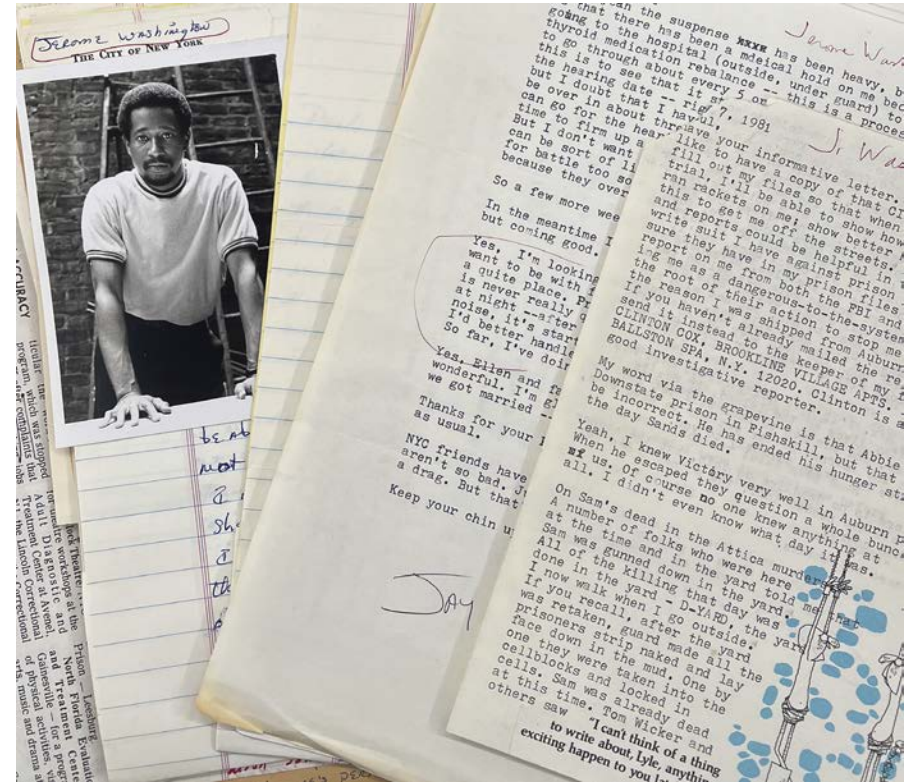 Jerome Washington
THE CITY OF NEW YORK
ACCURACY
ticular
program, which was stopped
after complaints that
for theatre workshops at the
Adult Diagnostic and
Treatment Center at Avenel,
the Lincoln Correctional
Prison, Leesburg,
North Florida Evaluati
and Treatment Cente
Gainesville — for a progr
of physical activities, vis
arts, music and drama
be
not
I
the
an the suspense xxxx has been heavy, b
that there has been a mdeical hold on me bec
going to the hospital (outside, under guard) to
thyroid medication rebalance -- this is a proces
to go through about every 5 or
this is to see that it st
the hearing date -- righ
but I doubt that I hav
be over in about thr
can go for the hear
time to firm up a
But I don't want
can be sort of li
for battle too so
because they over
So a few more wee
In the meantime I
but coming good.
Yes, I'm looking
want to be with
a quite place. Pr
is never really q
at night --after
noise, it's start
I'd better handle
So far, I've doin
Yes, Ellen and
wonderful. I'm g
we got married --
Thanks for your
as usual.
NYC friends have
aren't so bad. Ju
a drag. But that
Keep your chin u
Jay
Jerome Wa
7, 1981
J. Was
your informative letter.
like to have a copy of that
fill out my files so that when
trial, I'll be able to show how
ran rackets on me; show better
this to get me off the streets.
and reports could be helpful in
write suit I have against prison
sure they have in my prison files
report on me from both the FBI and
ing me as a dangerous-to-the-system
the root of their action to stop me
the reason I was shipped from Auburn
If you haven't already mailed the re
send it instead to the keeper of my f
CLINTON COX, BROOKLINE VILLAGE APTS.
BALLSTON SPA, N.Y. 12020. Clinton is a
good investigative reporter.
My word via the grapevine is that Abbie
Downstate prison in Fishskill, but that
be incorrect. He has ended his hunger st
the day Sands died.
Yeah, I knew Victory very well in Auburn p
When he escaped they question a whole bunc
of us. Of course no one knew anything at
all. I didn't even know what day it was.
On Sam's dead in the Attica murders
A number of folks who were here
at the time and in the yard told me that
Sam was gunned down in the yard.
All of the killing that day was
done in the yard - D-YARD, the yard
I now walk when I go outside.
If you recall, after the yard
was retaken, guard made all the
prisoners strip naked and lay
face down in the mud. One by
one they were taken into the
cellblocks and locked in
cells. Sam was already dead
at this time. Tom Wicker and
others saw
"I can't think of a thing
to write about, Lyle, anythin
exciting happen to you